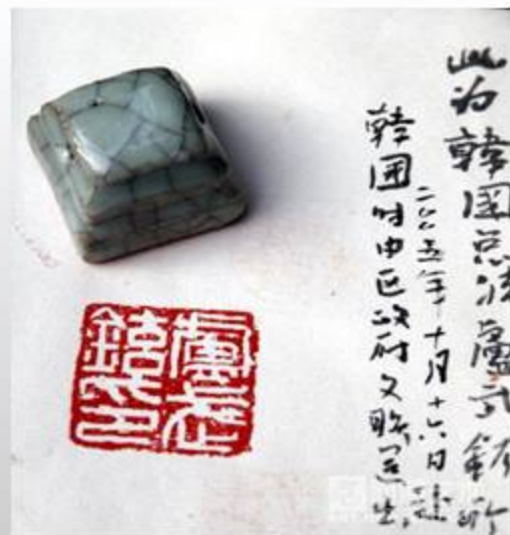 此为韩国总统卢武铉所
二〇〇五年十月十六日赴
韩国时中区政府文联
卢武铉印